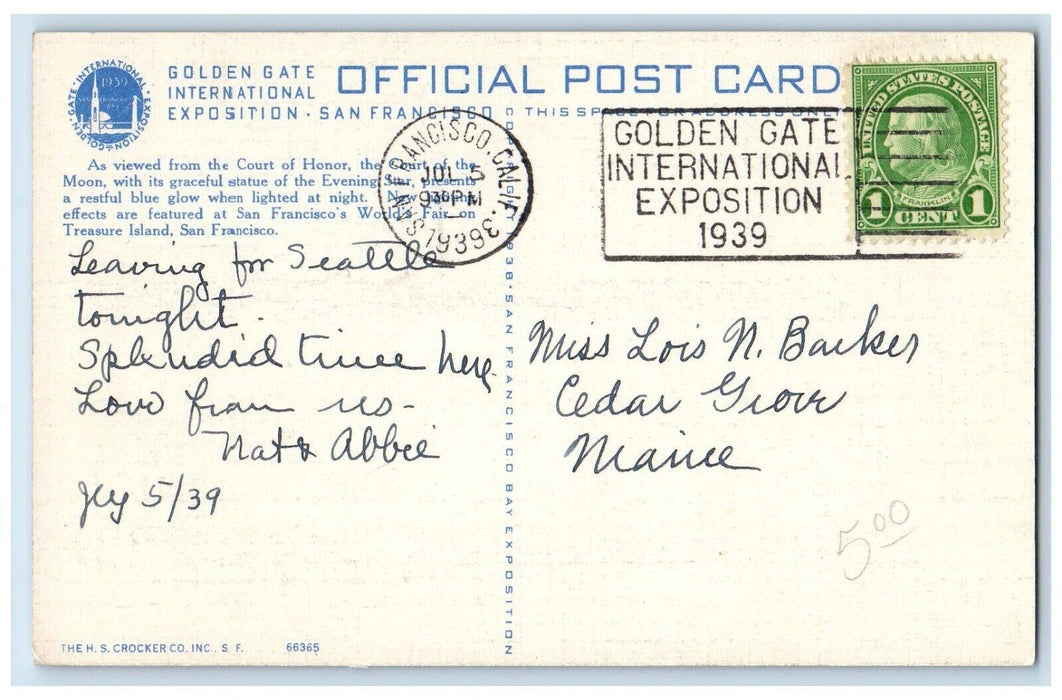 GOLDEN GATE INTERNATIONAL EXPOSITION
1939
GOLDEN GATE
INTERNATIONAL
EXPOSITION · SAN FRANCISCO
OFFICIAL POST CARD
THIS SPACE FOR ADDRESS ONLY
As viewed from the Court of Honor, the Court of the
Moon, with its graceful statue of the Evening Star, presents
a restful blue glow when lighted at night. New
effects are featured at San Francisco's World's Fair on
Treasure Island, San Francisco.
SAN FRANCISCO, CALIF.
JUL 5
930 PM
1939
GOLDEN GATE
INTERNATIONAL
EXPOSITION
1939
UNITED STATES POSTAGE
FRANKLIN
1 CENT 1
Leaving for Seattle
tonight.
Splendid time here
Love from us -
Nat & Abbie
Jly 5/39
Miss Lois N. Barker
Cedar Grove
Maine
5.00
COPYRIGHT 1938 · SAN FRANCISCO BAY EXPOSITION
THE H. S. CROCKER CO. INC. S. F. 66365